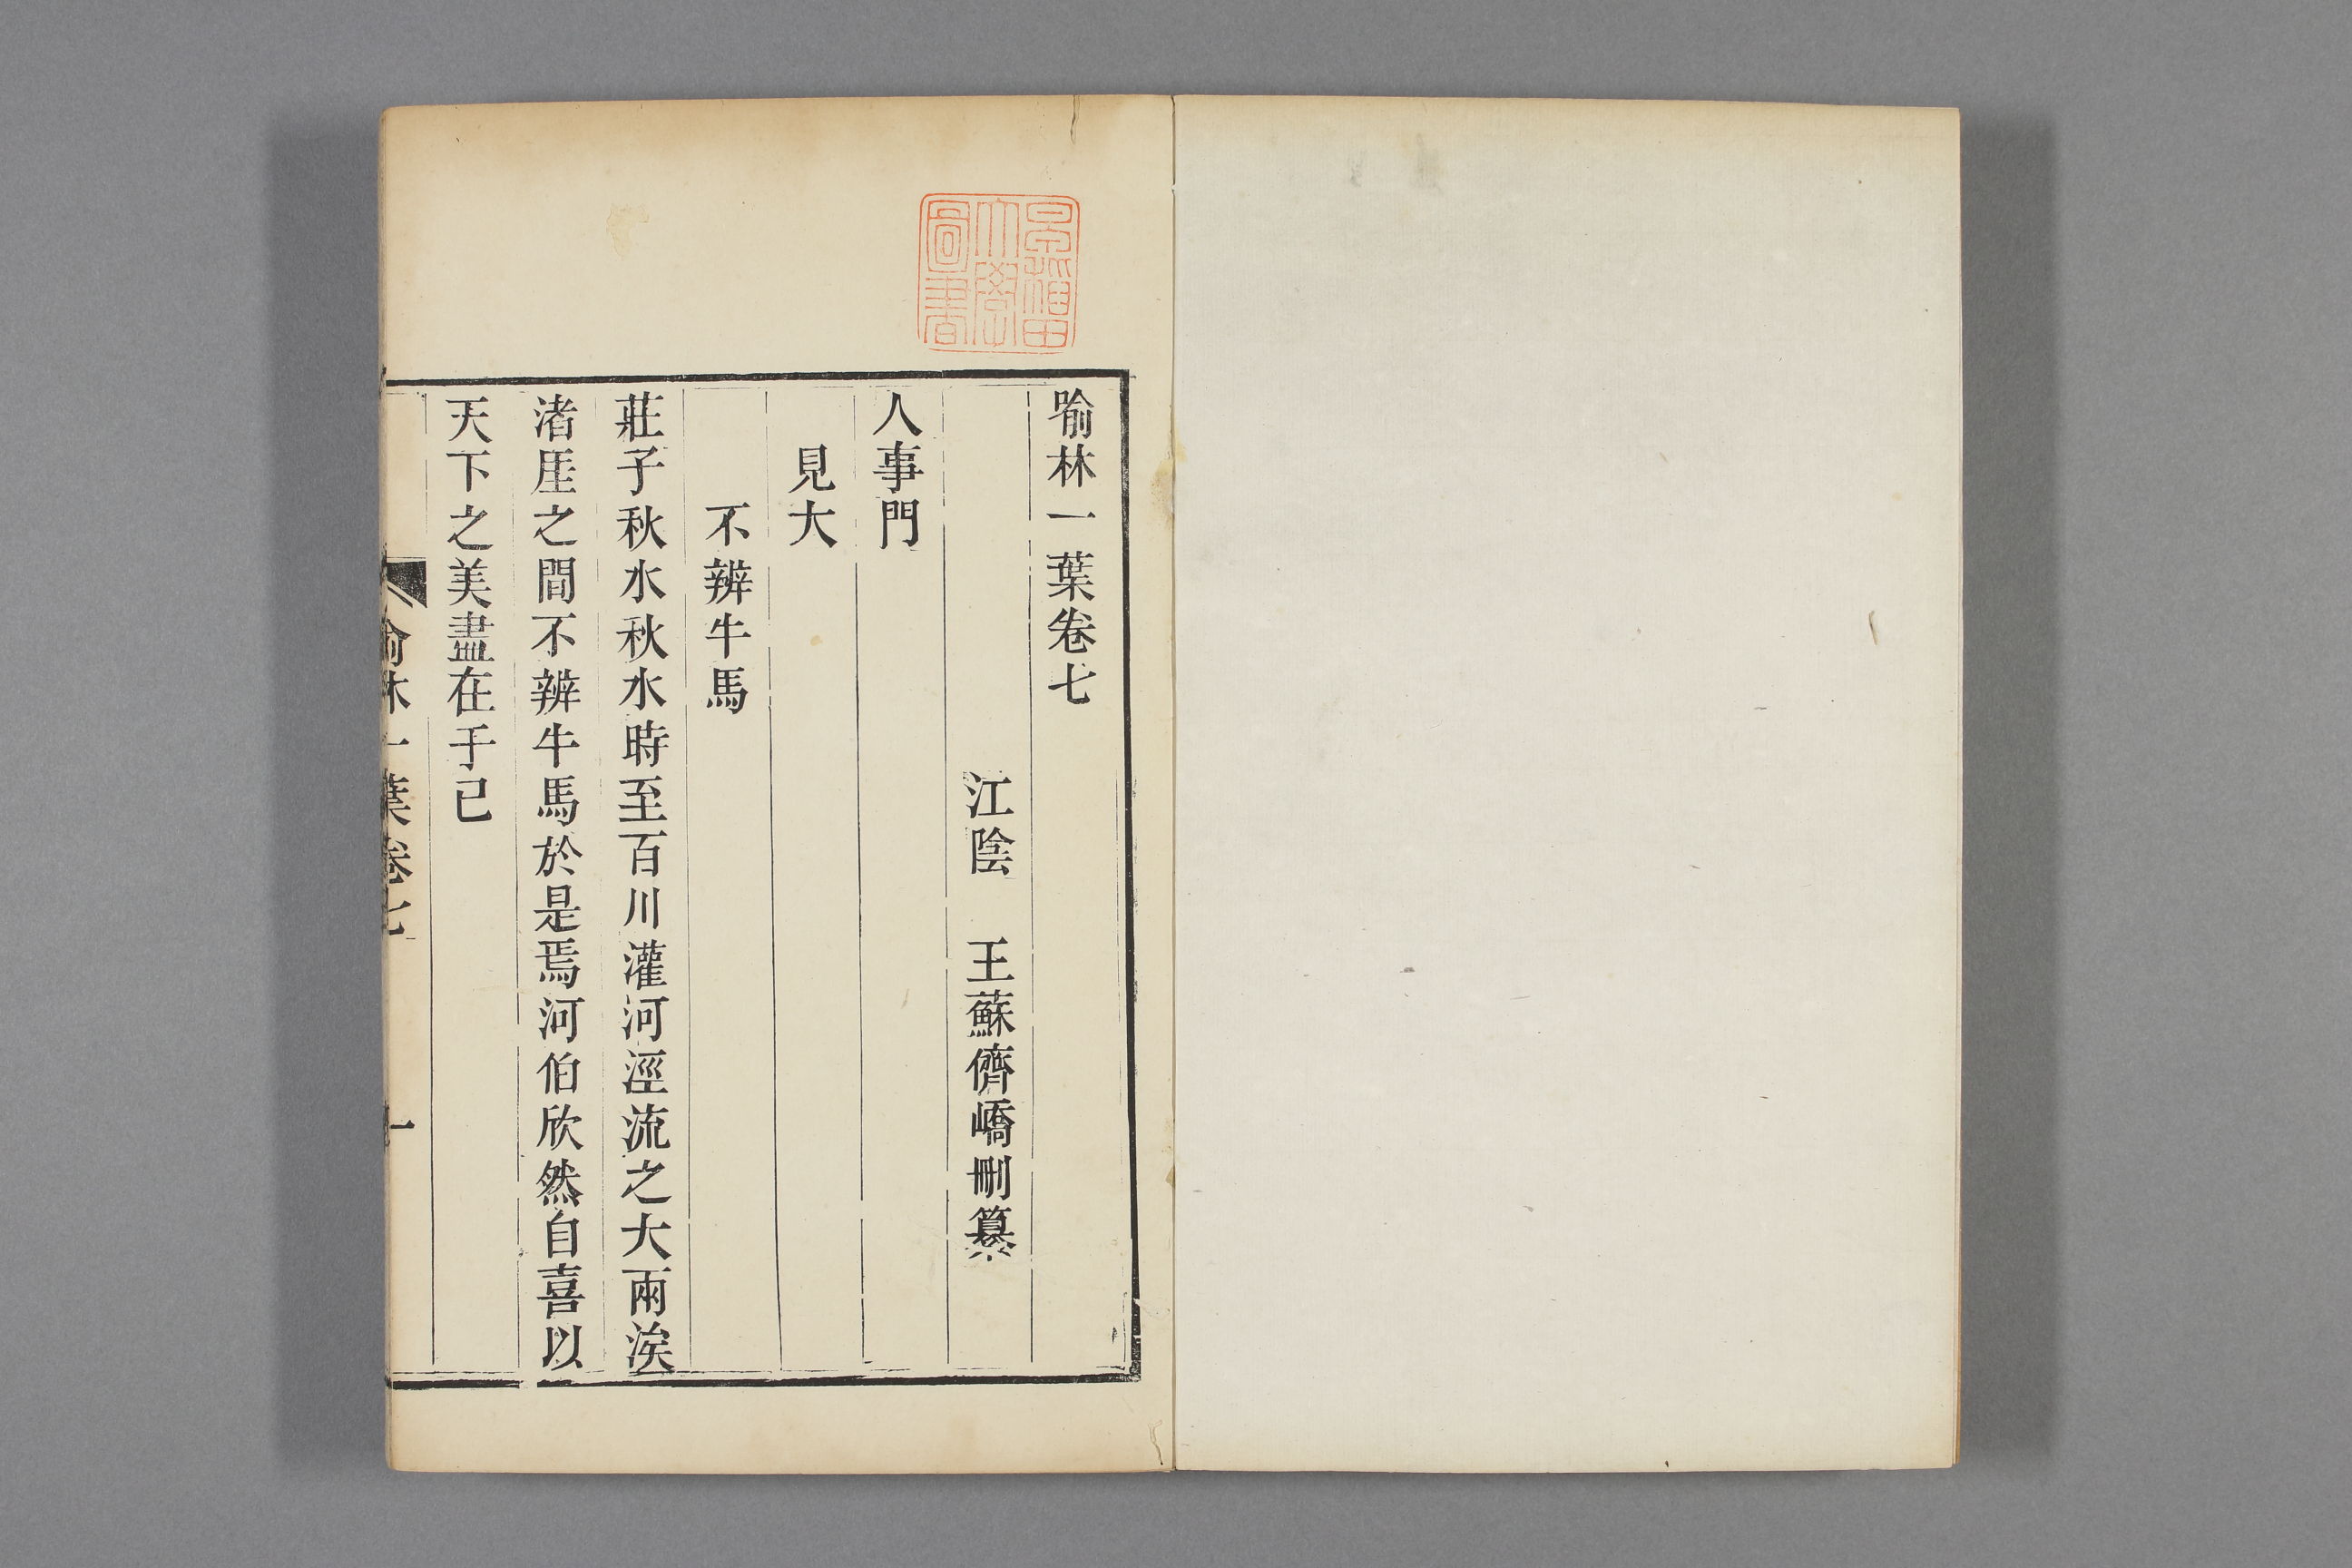 早稲田大學圖書
喻林一葉卷七
江陰 王蘇儕嶠刪纂
人事門
見大
不辨牛馬
莊子秋水秋水時至百川灌河涇流之大兩涘
渚厓之間不辨牛馬於是焉河伯欣然自喜以
天下之美盡在于己
喻林一葉卷七 一